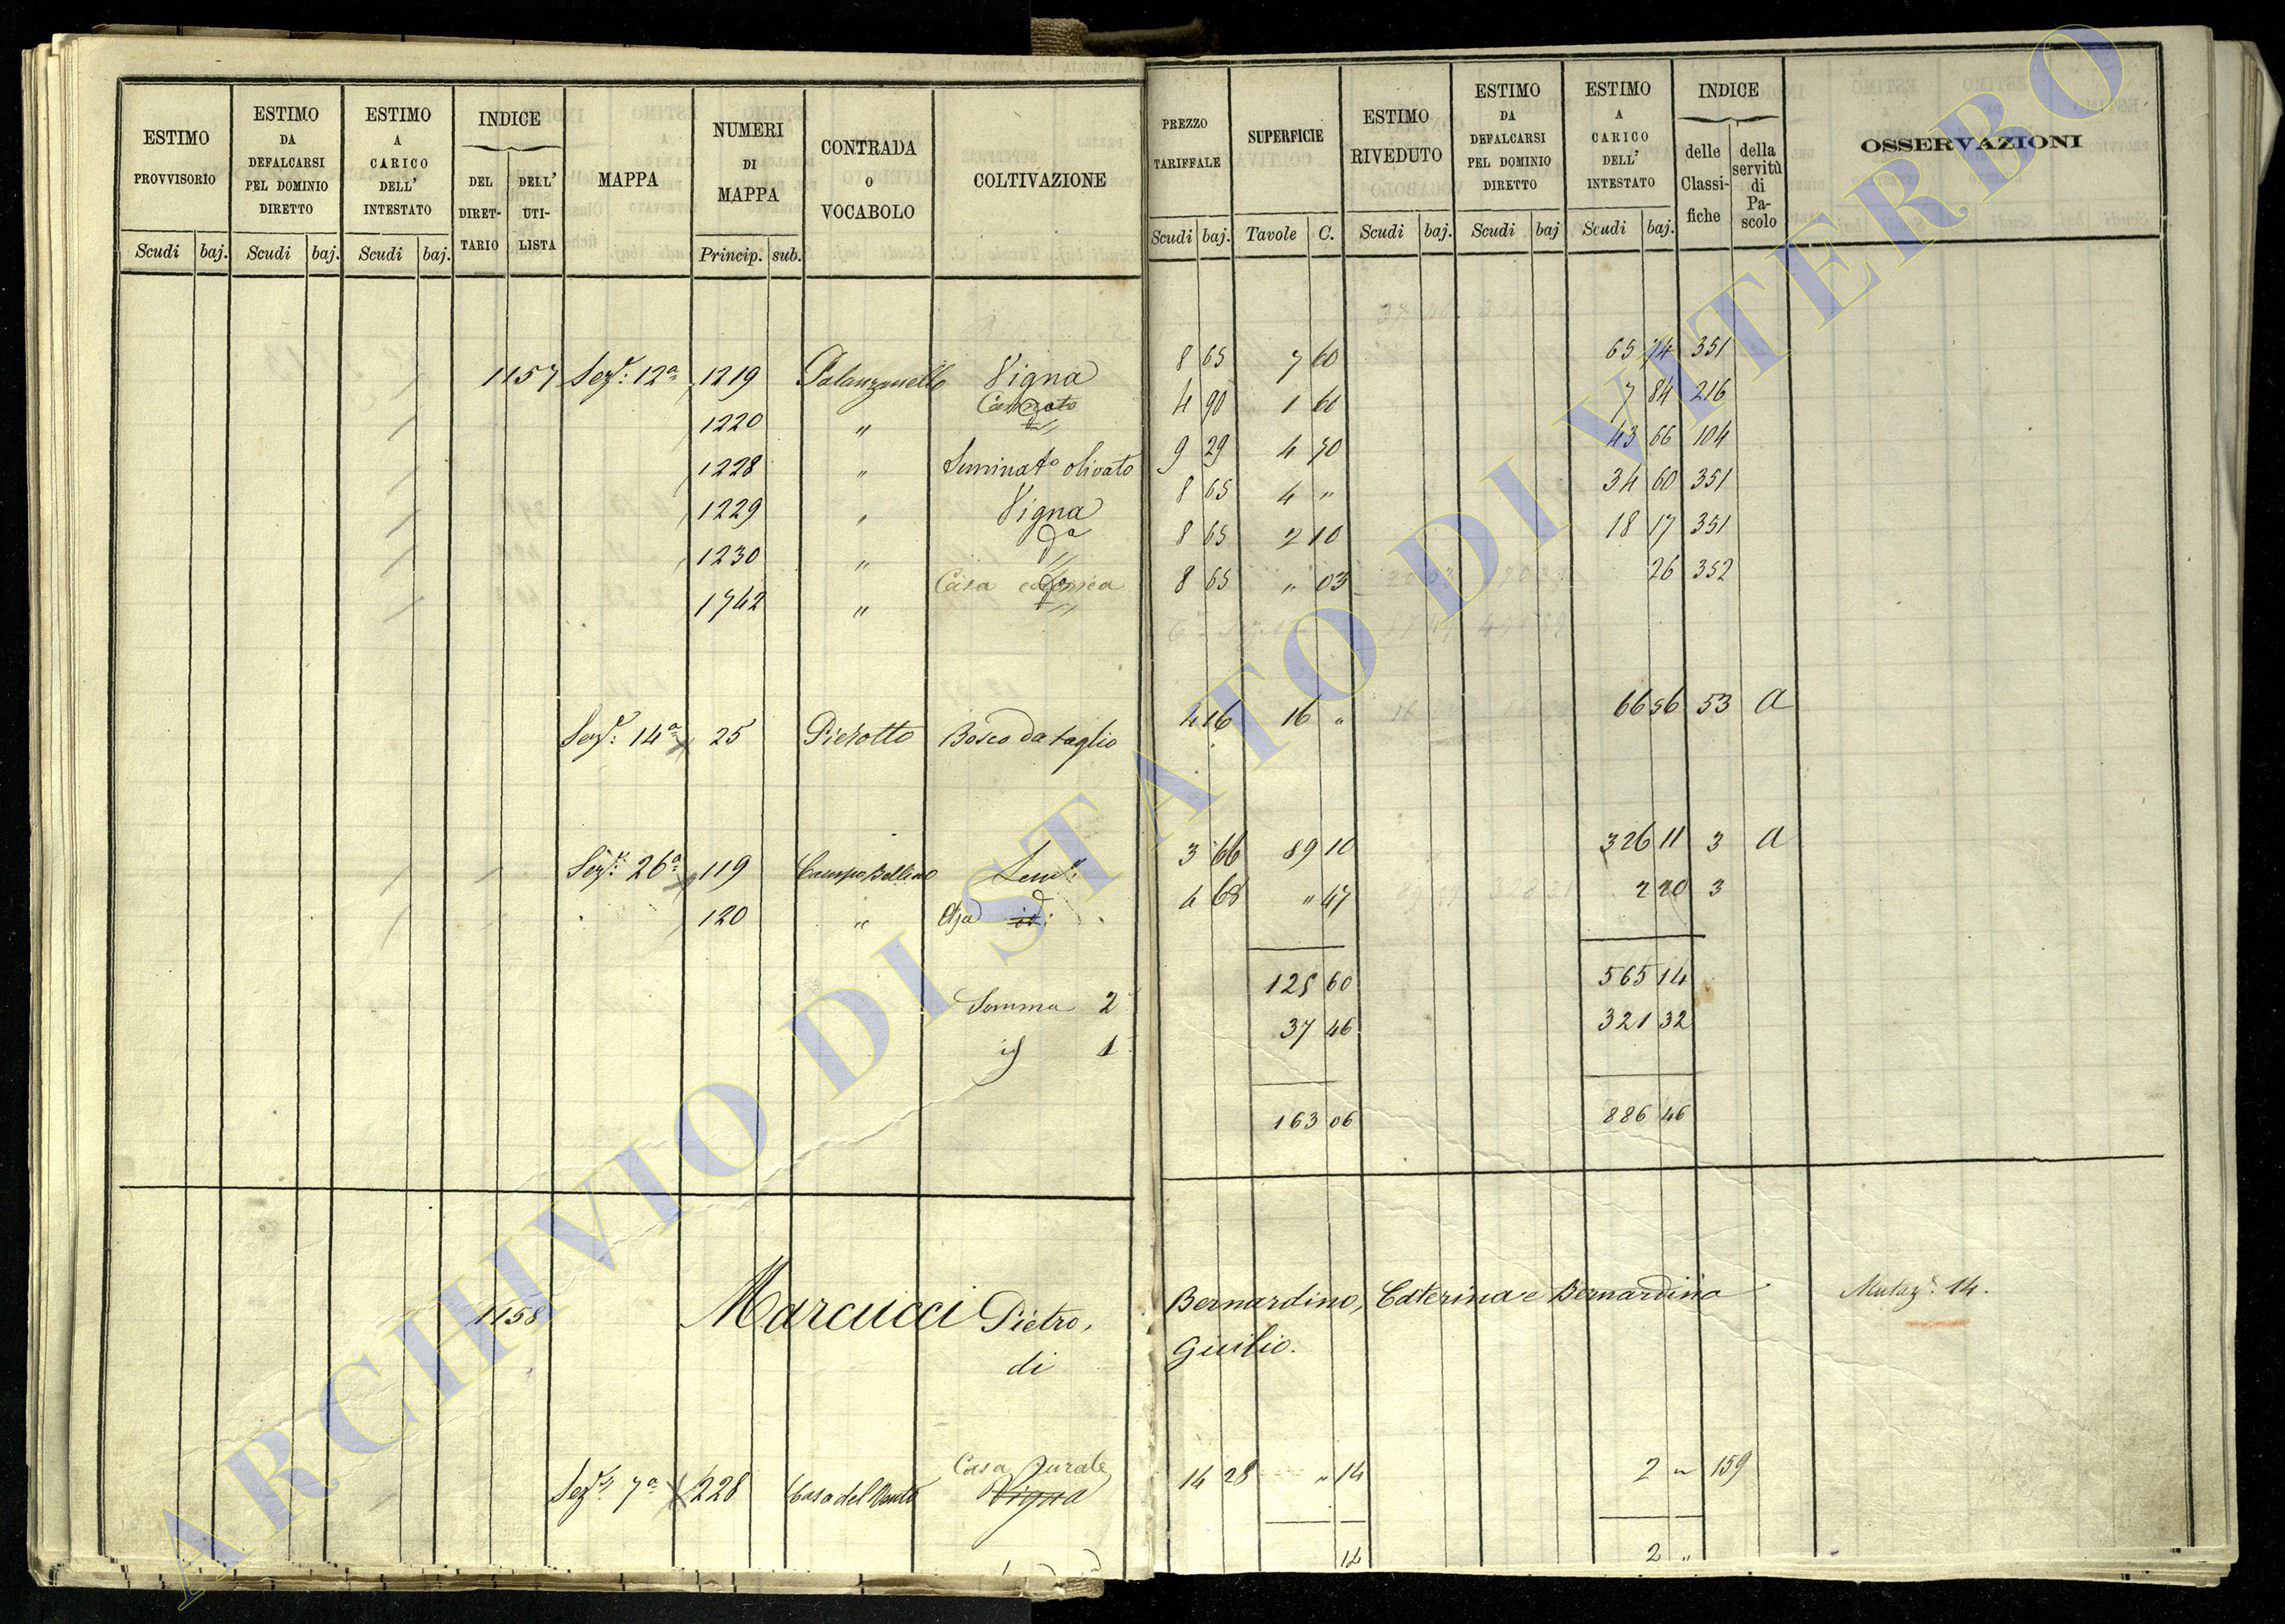 ESTIMO PROVVISORIO
Scudi baj.
ESTIMO DA DEFALCARSI PEL DOMINIO DIRETTO
Scudi baj.
ESTIMO A CARICO DELL' INTESTATO
Scudi baj.
INDICE
DEL DIRET-TARIO
DELL' UTI-LISTA
MAPPA
NUMERI DI MAPPA
Princip. sub.
CONTRADA O VOCABOLO
COLTIVAZIONE
PREZZO TARIFFALE
Scudi baj.
SUPERFICIE
Tavole C.
ESTIMO RIVEDUTO
Scudi baj.
ESTIMO DA DEFALCARSI PEL DOMINIO DIRETTO
Scudi baj
ESTIMO A CARICO DELL' INTESTATO
Scudi baj.
INDICE
delle Classi-fiche
della servitù di Pa-scolo
OSSERVAZIONI
1157 Sez.: 12a 1219 Palanzanello Vigna 8 65 7 60 65 74 351
1220 " 4 90 1 60 7 84 216
1228 " Seminato olivato 9 29 4 70 43 66 104
1229 " Vigna 8 65 4 " 34 60 351
1230 " Da 8 65 2 10 18 17 351
1742 " Casa colonica 8 65 " 03 26 352
Sez.: 14a 25 Pierotto Bosco da taglio 4 16 16 " 66 56 53 a
Sez.: 26a 119 Campo Bellino Sem.: 3 66 89 10 326 11 3 a
120 " Aja id: 4 68 " 47 2 20 3
Somma 2 125 60 565 14
id 1 37 46 321 32
163 06 886 46
1158 Marcucci Pietro, Bernardino, Caterina e Bernardina Mutaz.: 14.
di Giulio.
Sez. 7a 228 Casa del Vento Casa rurale Vigna 14 28 " 14 2 " 159
14 2 "
ARCHIVIO DI STATO DI VITERBO